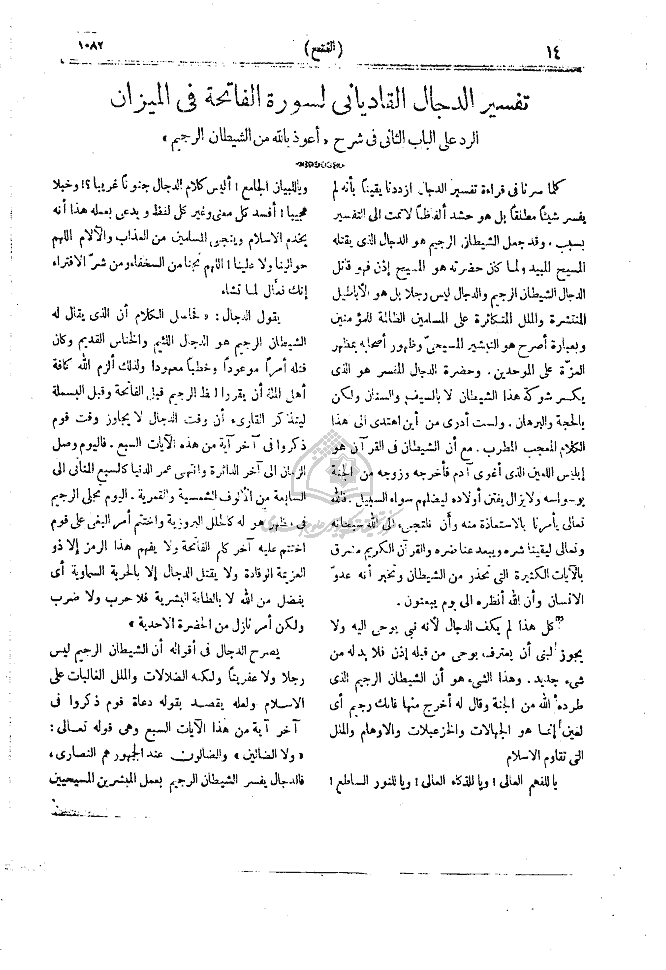 ١٤
(الفتح)
١٠٨٢
تفسير الدجال القادياني لسورة الفاتحة في الميزان
الرد على الباب الثاني في شرح « أعوذ بالله من الشيطان الرجيم »
كلما سرنا في قراءة تفسير الدجال ازددنا يقيناً بأنه لم
يفسر شيئاً مطلقاً بل هو حشد ألفاظاً لا تمت الى التفسير
بسبب . وقد جعل الشيطان الرجيم هو الدجال الذي يقتله
المسيح المبيد ولما كان حضرته هو المسيح إذن فهو قاتل
الدجال الشيطان الرجيم والدجال ليس رجلا بل هو الأباطيل
المنتشرة والملل المتكاثرة على المسلمين الظالمة للمؤمنين
وبعبارة أصرح هو التبشير المسيحي وظهور أصحابه بمظهر
العزة على الموحدين . وحضرة الدجال المفسر هو الذي
يكسر شوكة هذا الشيطان لا بالسيف والسنان ولكن
بالحجة والبرهان . ولست أدري من أين اهتدى الى هذا
الكلام المعجب المطرب . مع أن الشيطان في القرآن هو
إبليس اللعين الذي أغرى آدم فأخرجه وزوجه من الجنة
بوسواسه ولا يزال يفتن أولاده ليضلهم سواء السبيل . فالله
تعالى يأمرنا بالاستعاذة منه وأن نلتجىء الى الله سبحانه
وتعالى ليقينا شره ويبعد عنا ضره والقرآن الكريم
بالآيات الكثيرة التي تحذر من الشيطان وتخبر أنه عدوّ
الانسان وأن الله أنظره الى يوم يبعثون .
كل هذا لم يكف الدجال لأنه نبي يوحى اليه ولا
يجوز لنبي أن يعترف بوحي من قبله إذن فلا بد له من
شيء جديد . وهذا الشيء هو أن الشيطان الرجيم الذي
طرده الله من الجنة وقال له أخرج منها فانك رجيم أي
لعين إنما هو الجهالات والخزعبلات والاوهام والملل
التي تقاوم الاسلام
ياللفهم العالي ! ويا للذكاء العالي ! ويا للنور الساطع !
وياللبيان الجامع ! أليس كلام الدجال جنوناً غريباً ؟! وخبلا
عجيبا ! أفسد كل معنى وغير كل لفظ و يدعي بعمله هذا أنه
يخدم الاسلام وينجي المسلمين من العذاب والآلام اللهم
حوالينا ولا علينا ! اللهم نجنا من السخفاء ومن شرّ الافتراء
إنك فعال لما تشاء
يقول الدجال : « فحاصل الكلام أن الذي يقال له
الشيطان الرجيم هو الدجال اللئيم والخناس القديم وكان
قتله أمراً موعوداً وخطباً معهودا ولذلك ألزم الله كافة
أهل الملة أن يقرؤا لفظ الرجيم قبل الفاتحة وقبل البسملة
ليتذكر القارىء أن وقت الدجال لا يجاوز وقت قوم
ذكروا في آخر آية من هذه الآيات السبع . فاليوم وصل
الزمان الى آخر الدائرة وانتهى عمر الدنيا كالسبع المثاني الى
السابعة من الألوف الشمسية والقمرية . اليوم تجلى الرجيم
في مظهر هو له كالحلل البروزية واختتم أمر الغي على قوم
اختتم عليه آخر كلم الفاتحة ولا يفهم هذا الرمز إلا ذو
العزيمة الوقادة ولا يقتل الدجال إلا بالحربة السماوية أي
بفضل من الله لا بالطاقة البشرية فلا حرب ولا ضرب
ولكن أمر نازل من الحضرة الاحدية »
يصرح الدجال في أقواله أن الشيطان الرجيم ليس
رجلا ولا عفريتاً ولكنه الضلالات والملل الغالبات على
الاسلام ولعله يقصد بقوله دعاة قوم ذكروا في
آخر آية من هذا الآيات السبع وهي قوله تعالى :
« ولا الضالين » والضالون عند الجمهور هم النصارى ،
فالدجال يفسر الشيطان الرجيم بعمل المبشرين المسيحيين